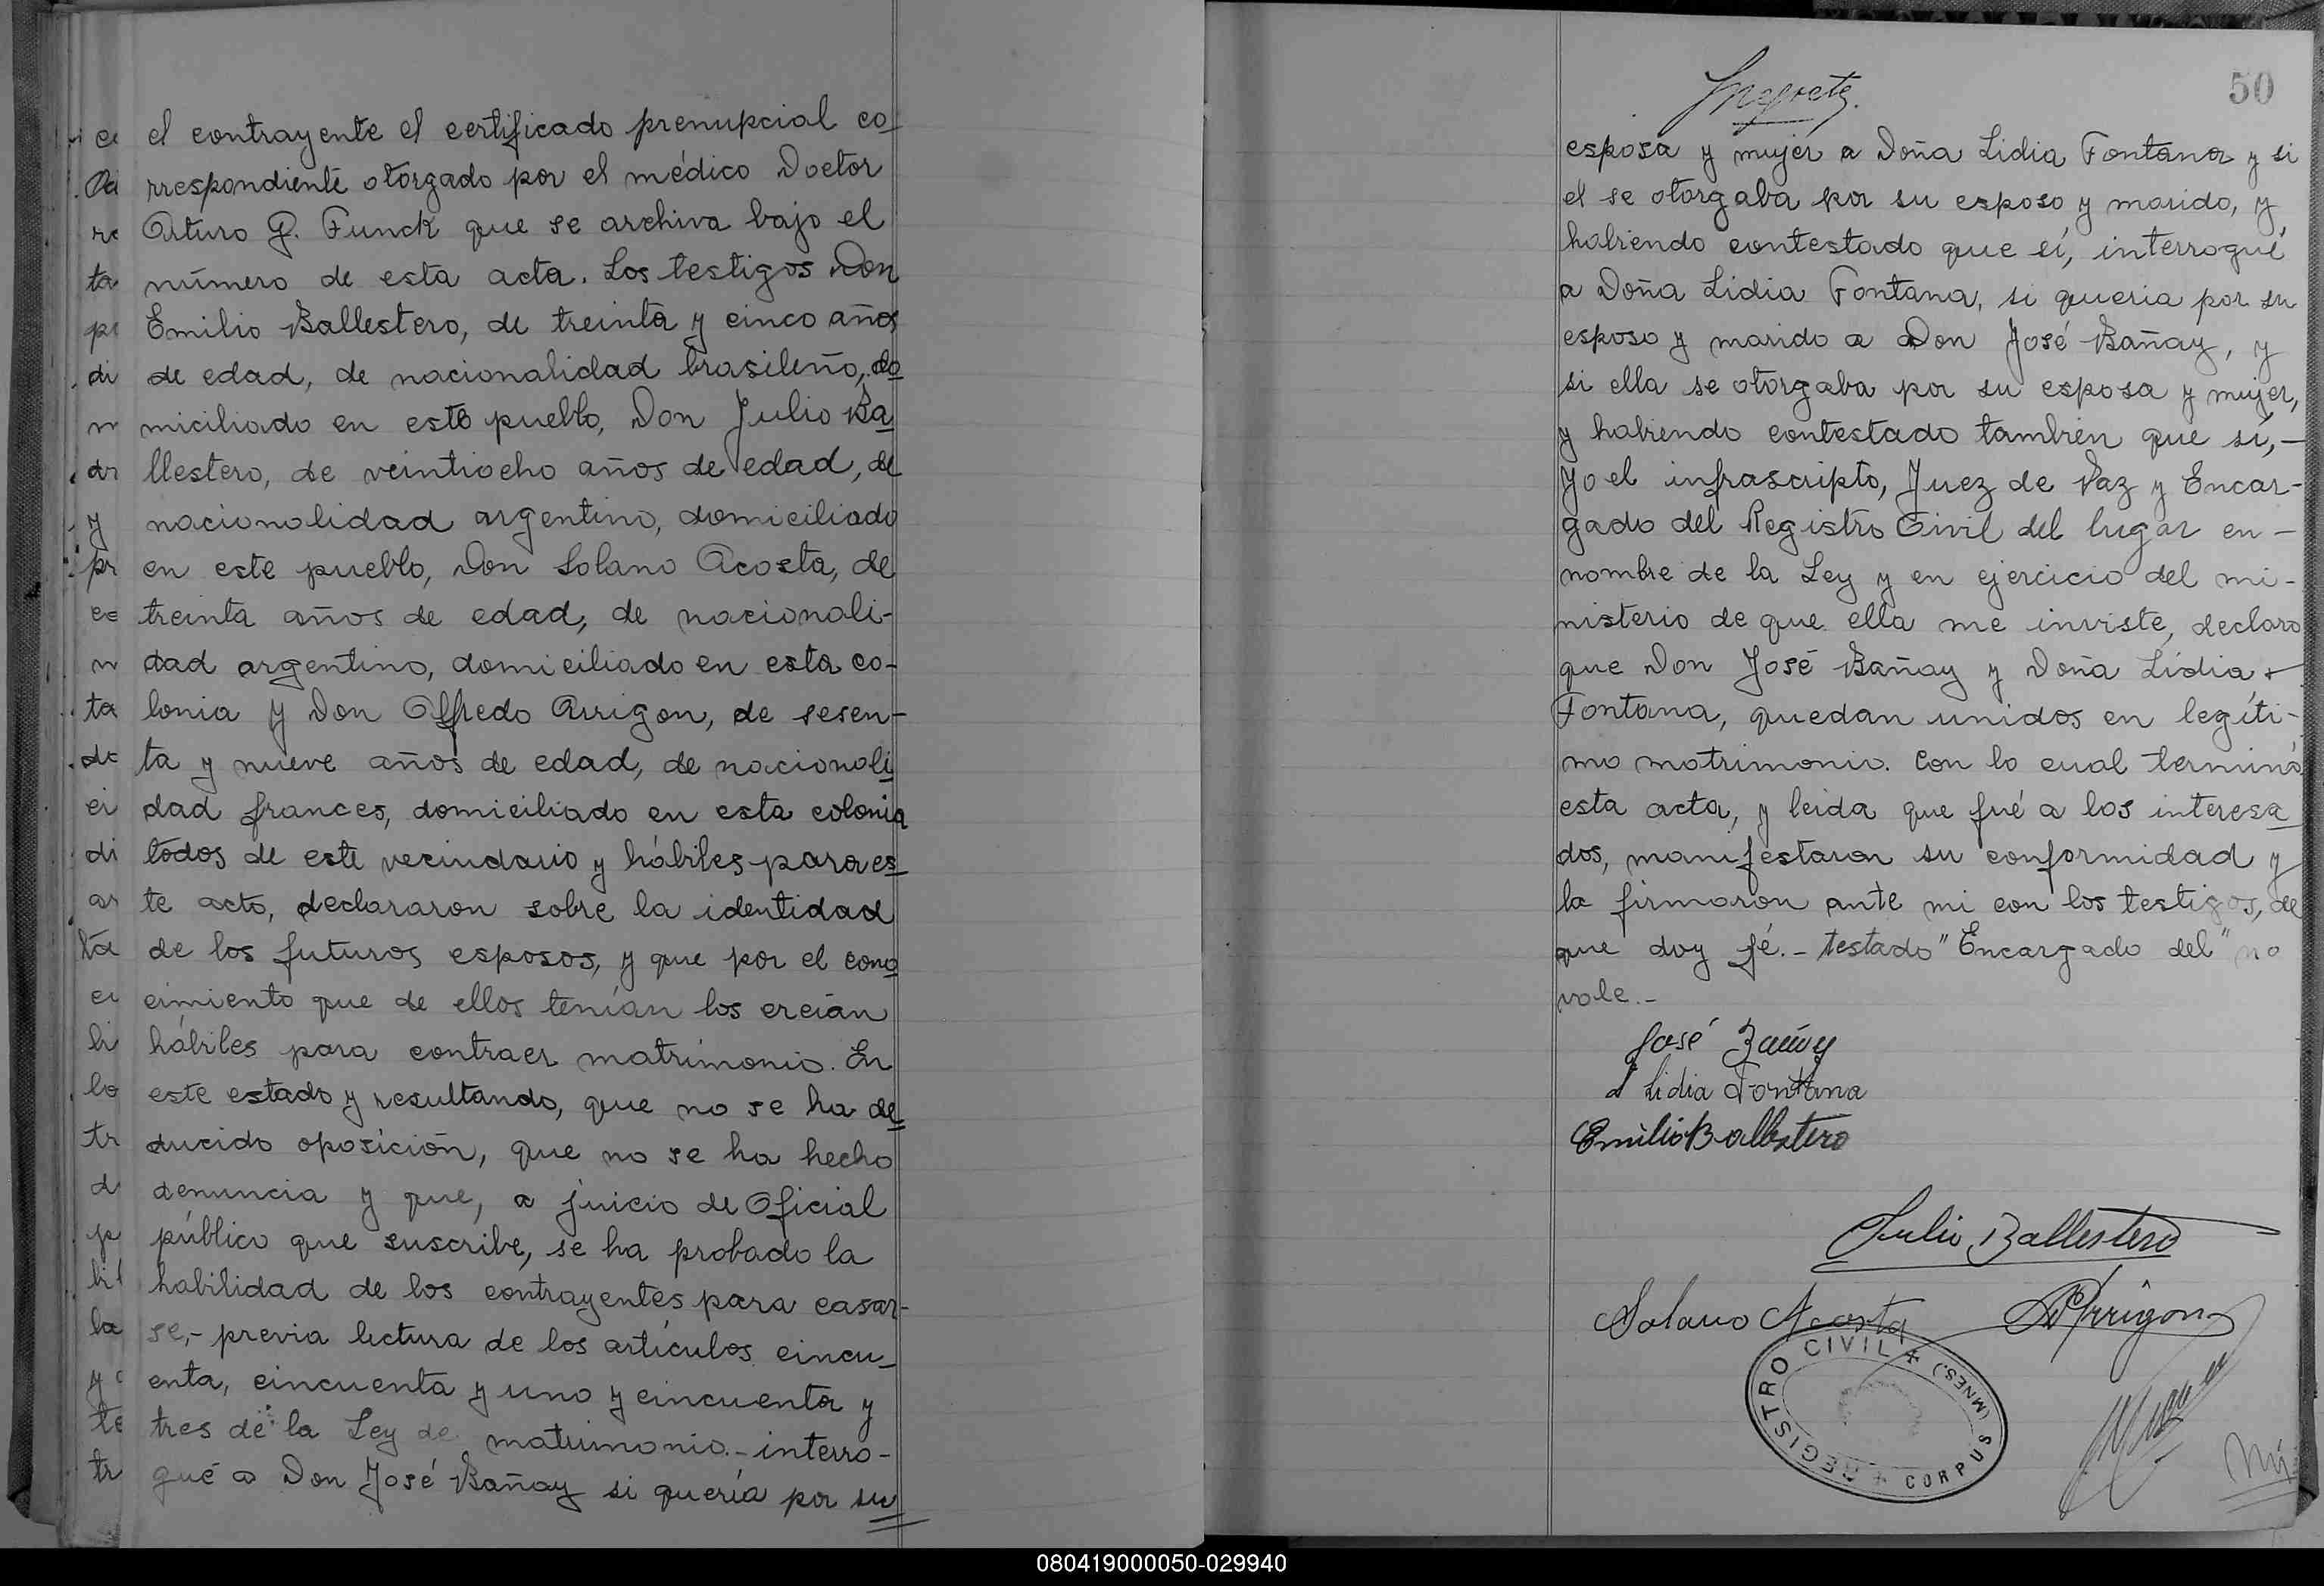 el contrayente el certificado prenupcial co_
rrespondiente otorgado por el médico Doctor
Arturo G. Funck que se archiva bajo el
número de esta acta. Los testigos Don
Emilio Ballestero, de treinta y cinco años
de edad, de nacionalidad brasileño, do
miciliado en este pueblo, Don Julio Ba
llestero, de veintiocho años de edad, de
nacionalidad argentino, domiciliado
en este pueblo, Don Solano Acosta, de
treinta años de edad, de nacionali-
dad argentino, domiciliado en esta co-
lonia y Don Alfredo Arrigon, de sesen-
ta y nueve años de edad, de nacionali
dad frances, domiciliado en esta colonia
todos de este vecindario y hábiles para es_
te acto, declararon sobre la identidad
de los futuros esposos, y que por el cono
cimiento que de ellos tenían los creían
hábiles para contraer matrimonio. En
este estado y resultando, que no se ha de
ducido oposición, que no se ha hecho
denuncia y que, a juicio de Oficial
público que suscribe, se ha probado la
habilidad de los contrayentes para casar-
se,- previa lectura de los artículos cincu_
enta, cincuenta y uno y cincuenta y
tres de la Ley de matrimonio.- interro-
gué a Don José Bañay si quería por su
50
esposa y mujer a Doña Lidia Fontana y si
él se otorgaba por su esposo y marido, y
habiendo contestado que sí, interrogué
a Doña Lidia Fontana, si queria por su
esposo y marido a Don José Bañay, y
si ella se otorgaba por su esposa y mujer,
y habiendo contestado tambien que sí,-
Yo el infrascripto, Juez de Paz y Encar-
gado del Registro Civil del lugar en-
nombre de la Ley y en ejercicio del mi-
nisterio de que ella me inviste, declaro
que Don José Bañay y Doña Lidia
Fontana, quedan unidos en legíti-
mo matrimonio. Con lo cual terminó
esta acta, y leida que fué a los interesa_
dos, manifestaron su conformidad y
la firmaron ante mi con los testigos, de
que doy fé.- testado "Encargado del" no
vale.-
José
Lidia Fontana
Emilio Ballestero
Julio Ballestero
Solano Acosta
A Arrigon
REGISTRO CIVIL + CORPUS (MNES.) +
080419000050-029940